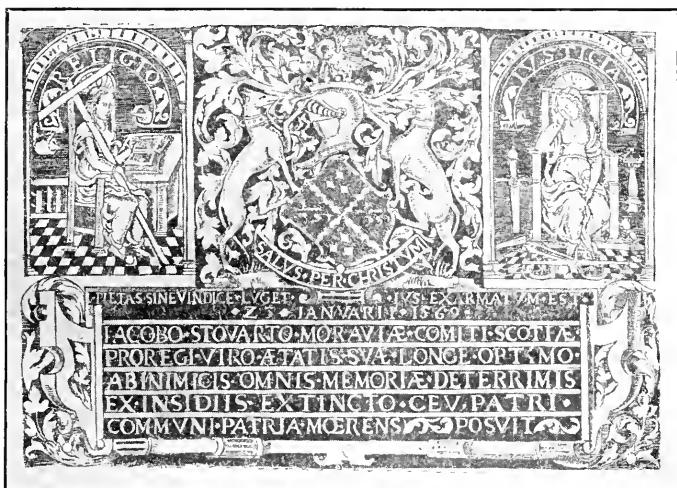 RELIGIO
IVSTICIA
SALVS·PER·CHRISTVM
PIETAS·SINE·VINDICE·LVGET· ·IVS·EXARMATVM·EST·
·Z3·IANVARII·1569·
IACOBO·STOVARTO·MORAVIÆ·COMITI·SCOTIÆ
PROREGI·VIRO·ÆTATIS·SVÆ·LONGE·OPTIMO·
AB·INIMICIS·OMNIS·MEMORIÆ·DETERRIMIS
EX·INSIDIIS·EXTINCTO·CEV·PATRI·
COMMVNI·PATRIA·MŒRENS POSVIT